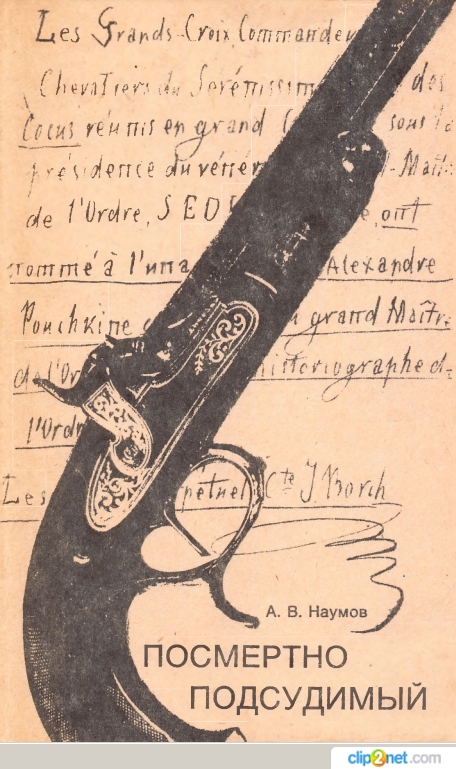 Les Grands-Croix Commandeu
Chevaliers du Sérénissim des
Cocus réunis en grand sous la
présidence du vénér d-Maît
de l'Ordre, S E D ont
nommé à l'una Alexandre
Pouchkine grand Maîtr
de l'Or historiographe d
l'Ordr
Les pétuel Cte J Borch
А. В. Наумов
ПОСМЕРТНО
ПОДСУДИМЫЙ
clip2net.com